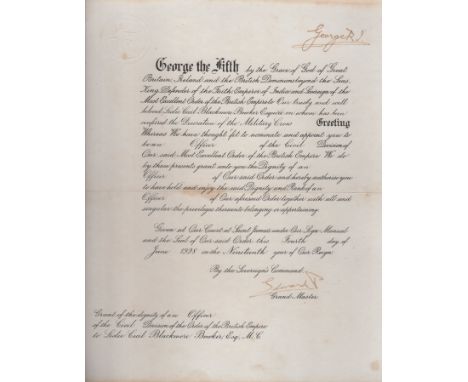 George R.I.
George the Fifth by the Grace of God of Great
Britain, Ireland and the British Dominions beyond the Seas
King, Defender of the Faith, Emperor of India and Sovereign of the
Most Excellent Order of the British Empire to Our trusty and well
beloved Leslie Cecil Blackmore Bowker Esquire on whom has been
conferred the Decoration of the Military Cross Greeting
Whereas We have thought fit to nominate and appoint you to
be an Officer of the Civil Division of
Our said Most Excellent Order of the British Empire We do
by these presents grant unto you the Dignity of an
Officer of Our said Order and hereby authorise you
to have hold and enjoy the said Dignity and Rank of an
Officer of Our aforesaid Order together with all and
singular the privileges thereunto belonging or appertaining.
Given at Our Court at Saint James under Our Sign Manual
and the Seal of Our said Order this Fourth day of
June 1928 in the Nineteenth year of Our Reign.
By the Sovereign's Command.
Edward P
Grand Master
Grant of the dignity of an Officer
of the Civil Division of the Order of the British Empire
to Leslie Cecil Blackmore Bowker, Esq., M.C.